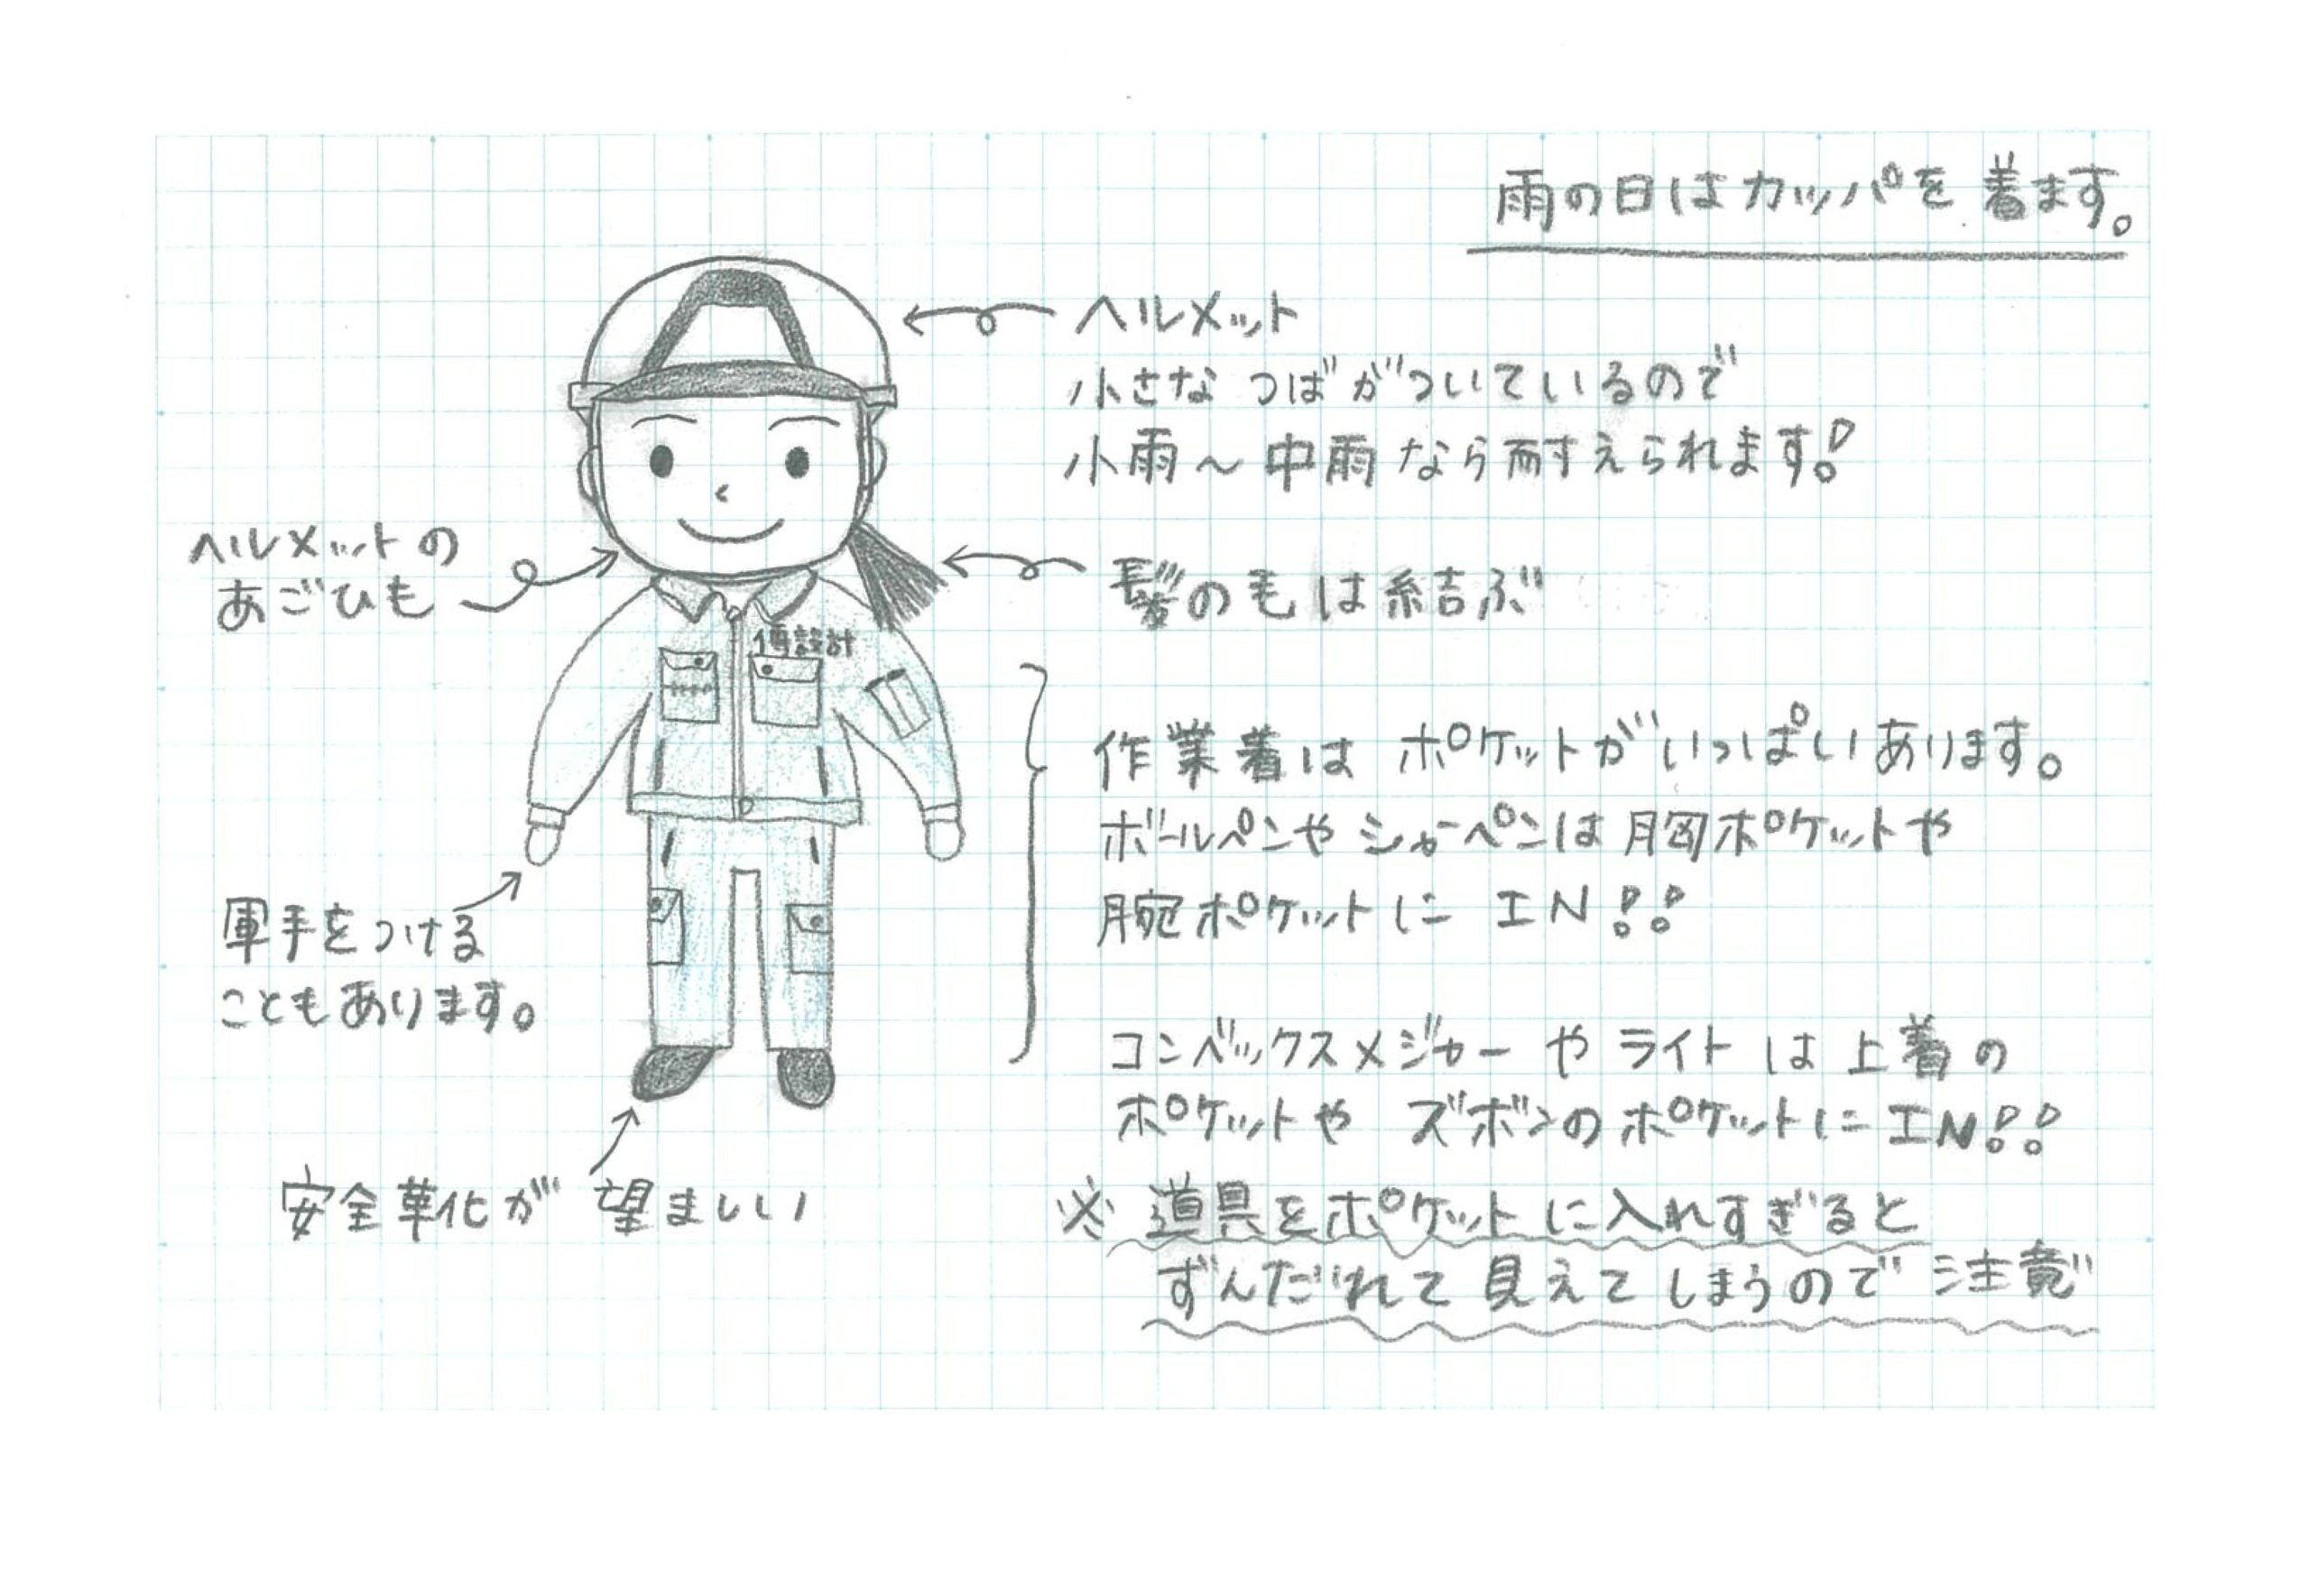 雨の日はカッパを着ます。
ヘルメット
小さなつばがついているので
小雨～中雨なら耐えられます!
ヘルメットの
あごひも
髪の毛は結ぶ
設計
作業着はポケットがいっぱいあります。
ボールペンやシャーペンは胸ポケットや
腕ポケットにIN!!
軍手をつける
こともあります。
コンベックスメジャーやライトは上着の
ポケットやズボンのポケットにIN!!
安全靴が望ましい
※道具をポケットに入れすぎると
ずんだれて見えてしまうので注意